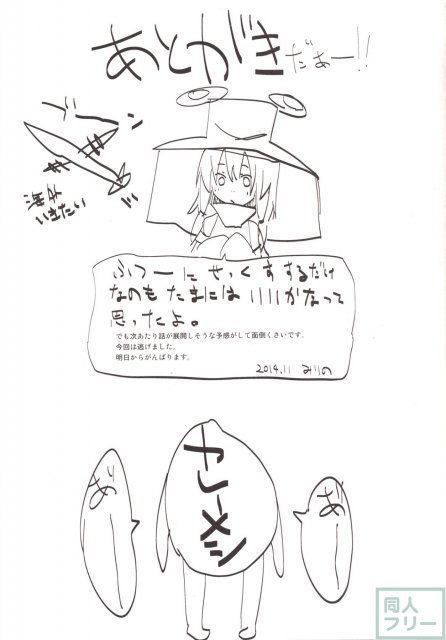 あとがき
だぁー!!
ドーン
いきたい
ふつーにせっくすするだけ
なのもたまにはいいかなって
思ったよ。
でも次あたり話が展開しそうな予感がして面倒くさいです。
今回は逃げました。
明日からがんばります。
2014.11 みりの
カレーメシ
同人
フリー